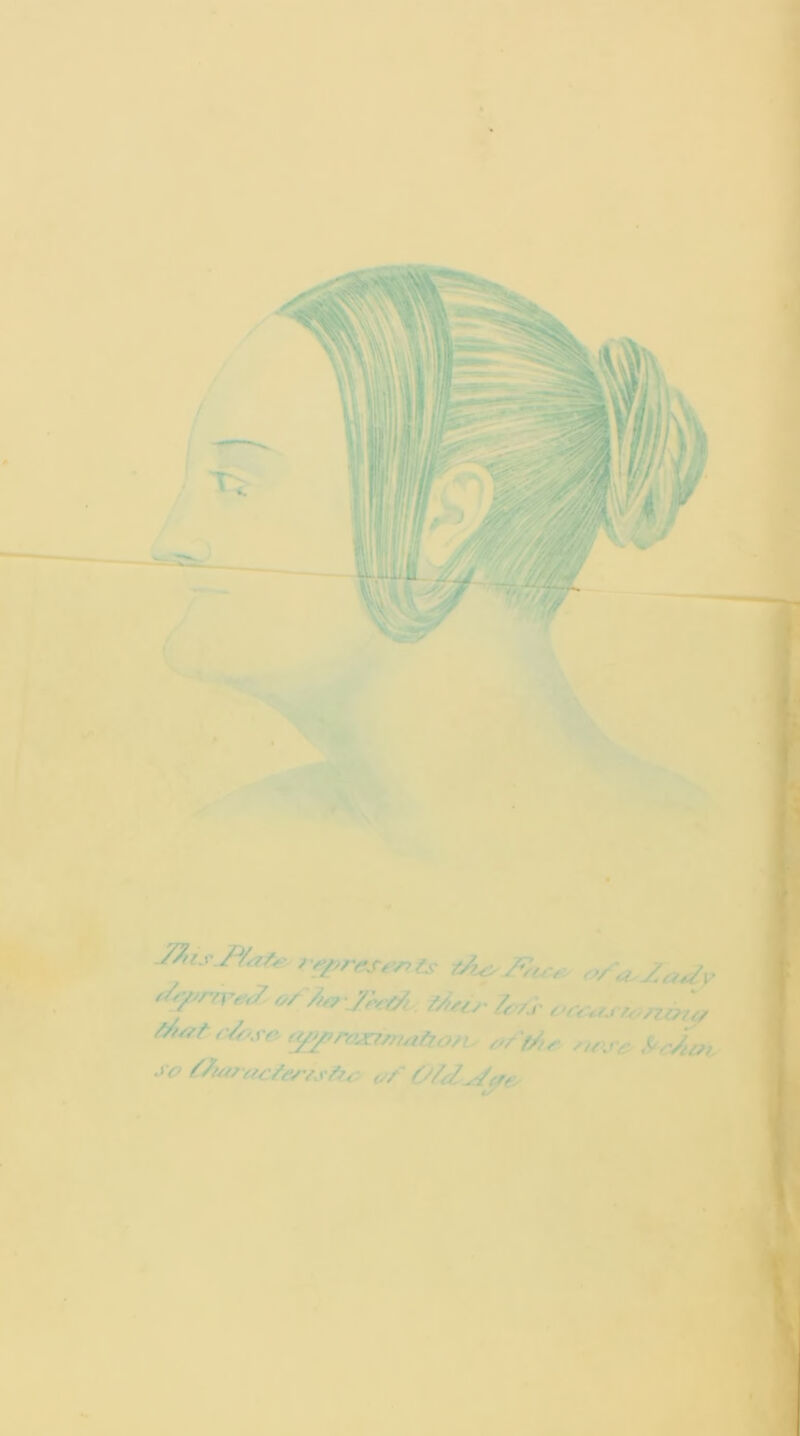 This Plate represents the Face of a Lady
deprived of her Teeth their Lofs occasioning
that close approximation of the nose & chin
so Characteristic of Old Age